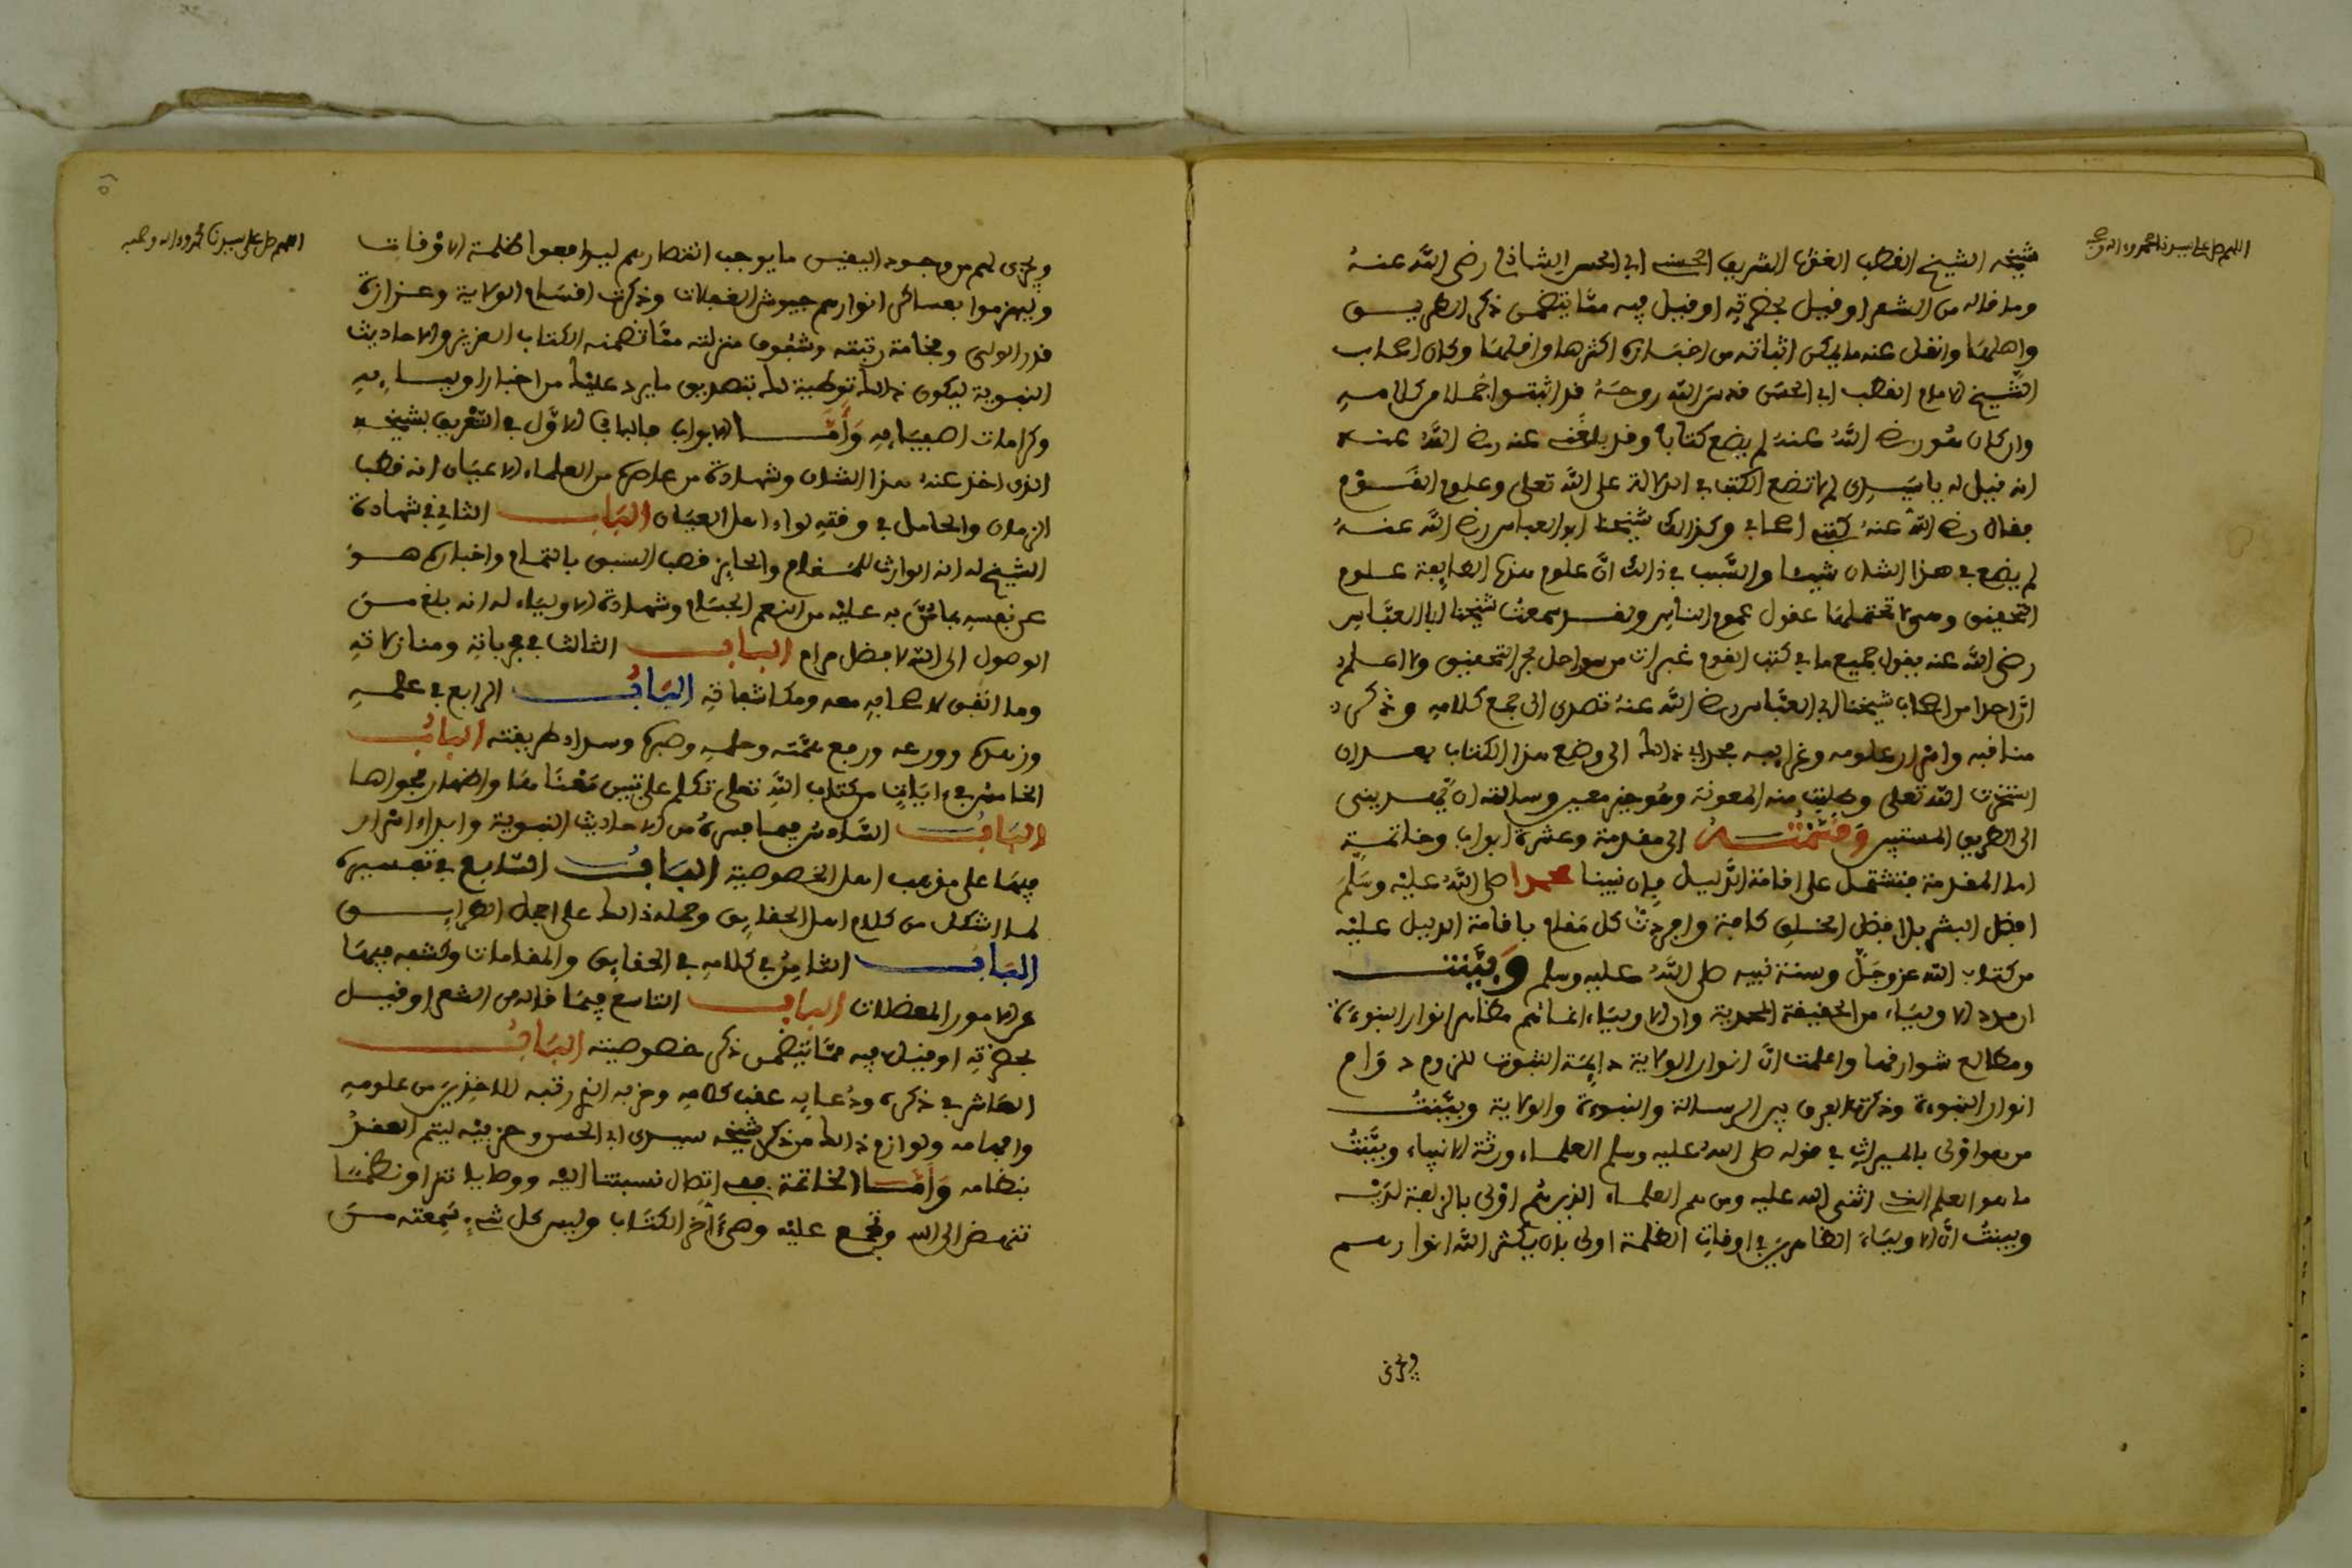 اللهم صل على سيدنا محمد وءاله وصحبه
شيخه الشيخ القطب الغوث الشريف الحسيب ابي الحسن الشاذلي رضي الله عنه
وما قاله من الشعر او قيل بحضرته او قيل فيه مما يتضمن ذكر الطريق
واهلها وانقل عنه ما يمكن اثباته من اخباره اكثرها واقلها وكان اصحاب
الشيخ الامام القطب ابي الحسن قدس الله روحه قد اثبتوا جملا من كلامه
وان كان هو رضي الله عنه لم يضع كتابا وقد بلغني عنه رضي الله عنه
انه قيل له يا سيدي لم لا تضع الكتب في الدلالة على الله تعلى وعلوم القوم
فقال رضي الله عنه كتبي اصحابي وكذالك شيخنا ابو العباس رضي الله عنه
لم يضع في هذا الشان شيئا والسبب في ذالك ان علوم هذه الطايفة علوم
التحقيق وهي لا تحتملها عقول عموم الناس ولقد سمعت شيخنا ابا العباس
رضي الله عنه يقول جميع ما في كتب القوم عبرات من سواحل بحر التحقيق ولا اعلم
ان احدا من اصحاب شيخنا ابي العباس رضي الله عنه تصدى الى جمع كلامه وذكر
مناقبه واسرار علومه وغرايبه فحداني ذالك الى وضع هذا الكتاب بعد ان
استخرت الله تعلى وطلبت منه المعونة وهو خير معين وسالته ان يهديني
الى الطريق المستبين وقسمته الى مقدمة وعشرة ابواب وخاتمة
اما المقدمة فتشتمل على اقامة الدليل بان نبينا محمدا صلى الله عليه وسلم
افضل البشر بل افضل الخلق كافة وافردت كل مقام باقامة الدليل عليه
من كتاب الله عز وجل وسنة نبيه صلى الله عليه وسلم وبينت
امداد الاولياء من الحقيقة المحمدية وان الاولياء انما هم مظاهر انوار النبوءة
ومطالع شوارقها واعلمت ان انوار الولاية دايمة الثبوت للزوم دوام
انوار النبوءة وذكرت الفرق بين الرسالة والنبوءة والولاية وبينت
من هو اولى بالميراث في قوله صلى الله عليه وسلم العلماء ورثة الانبياء وبينت
ما هو العلم الذي اثنى الله عليه ومن هم العلماء الذين هم اولى بالزلفة لديه
وبينت ان الاولياء الظاهرين في اوقات الظلمة اولى بان يكثر الله انوارهم
ويجري
اللهم صل على سيدنا محمد وءاله وصحبه
ويجري لهم من وجود اليقين ما يوجب انتصارهم ليدافعوا ظلمة الاوقات
ويهزموا بعساكر انوارهم جيوش الغفلات وذكرت اقسام الولاية وعزازة
قدر الولي وفخامة رتبته وشفوف منزلته مما تضمنه الكتاب العزيز والاحاديث
النبوية ليكون ذالك توطية لك بتصديق ما يرد عليك من اخبار اوليايه
وكرامات اصفيايه وأما الابواب فالباب الاول في التعريف بشيخه
الذي اخذ عنه هذا الشان وشهادة من عاصره من العلماء الاعيان انه قطب
الزمان والحامل في وقته لواء اهل العيان الباب الثاني في شهادة
الشيخ له انه الوارث للمقام والحايز قصب السبق بالتمام واخباره هو
عن نفسه بما من به عليه من النعم الجسام وشهادة الاولياء له انه بلغ من
الوصول الى الله لافضل مرام الباب الثالث في مجرباته ومنازلاته
وما اتفق لاصحابه معه ومكاشفاته الباب الرابع في علمه
وزهده وورعه ورفع همته وحلمه وصبره وسداد طريقته الباب
الخامس في ءايات من كتاب الله تعلى تكلم على تبيين معناها واظهار فحواها
الباب السادس فيما فسره من الاحاديث النبوية وابداء اسرار
فيها على مذهب اهل الخصوصية الباب السابع في تفسيره
لما اشكل من كلام اهل الحقايق وحمله ذالك على اجمل الطرايق
الباب الثامن في كلامه في الحقايق والمقامات وكشفه فيها
عن الامور المعضلات الباب التاسع فيما قاله من الشعر او قيل
بحضرته او قيل فيه مما يتضمن ذكر خصوصيته الباب
العاشر في ذكره ودعايه عقب كلامه وحزبه الذي رتبه للاخذين من علومه
وافهامه ولوازم ذالك من ذكر شيخه سيدي ابي الحسن وحزبيه ليتم العقد
بنظامه وأما الخاتمة ففي اتصال نسبتنا اليه ووصايا نثرا ونظما
تنهض الى الله وتجمع عليه وهي ءاخر الكتاب وليس كل شيء سمعته من